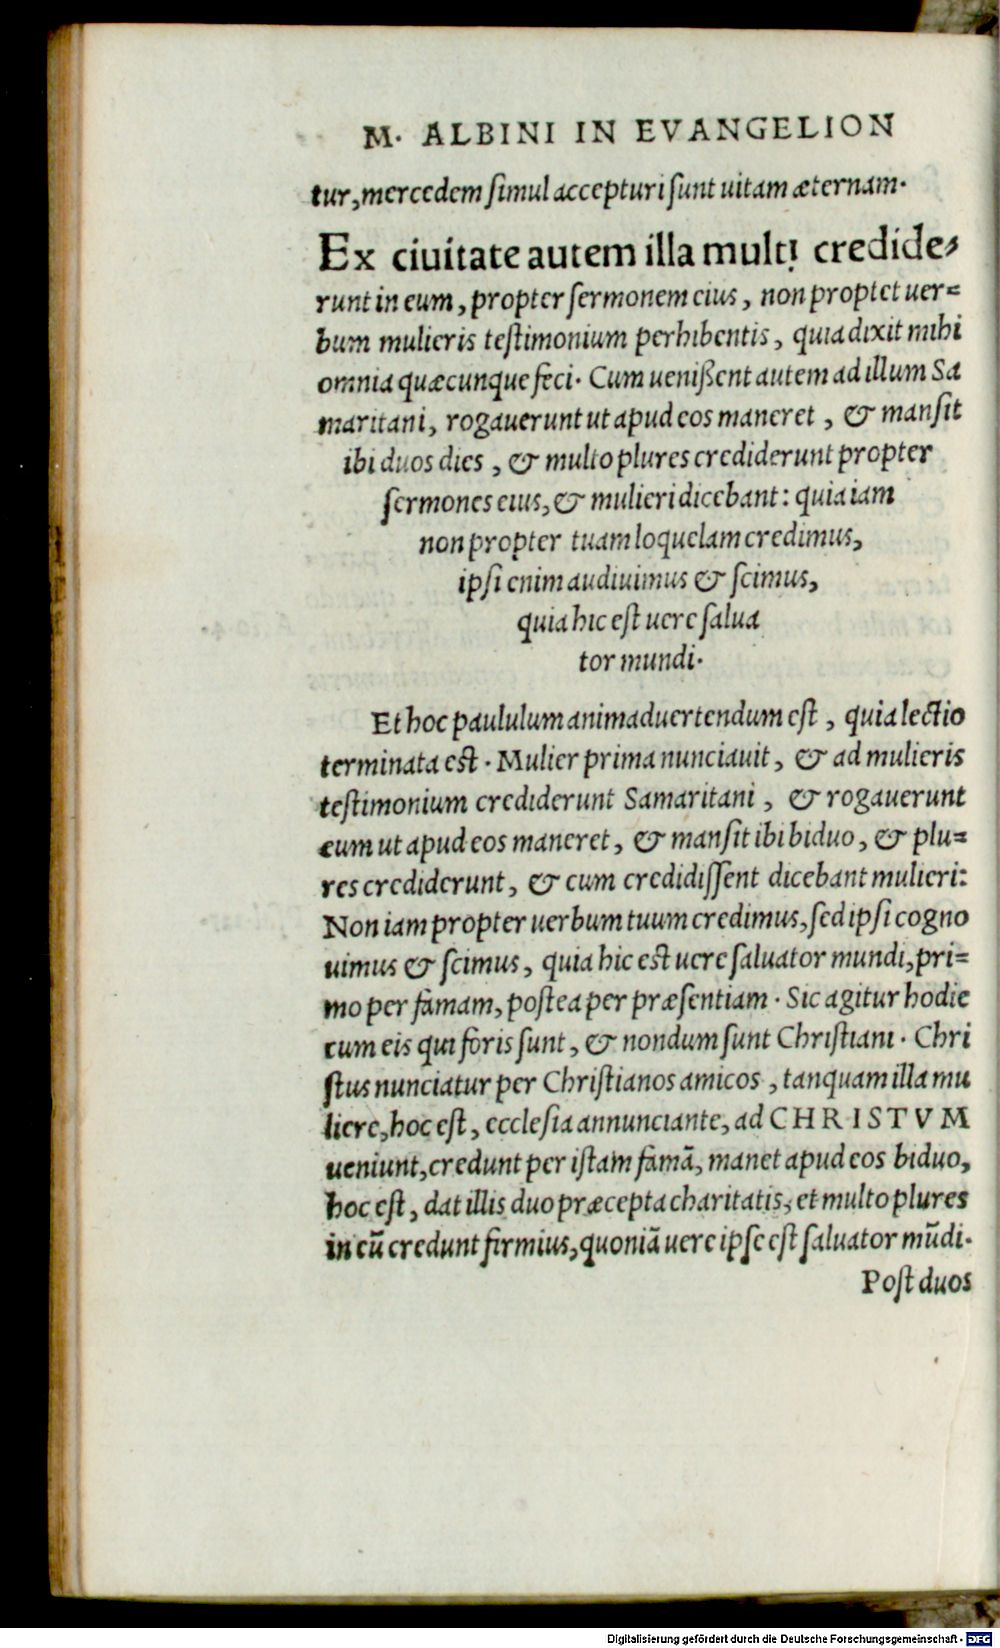 M. ALBINI IN EVANGELION
tur, mercedem ſimul accepturi ſunt uitam æternam.
Ex ciuitate autem illa multi credide⸗
runt in eum, propter ſermonem eius, non proptet uer⸗
bum mulieris teſtimonium perhibentis, quia dixit mihi
omnia quæcunque feci. Cum uenißent autem ad illum Sa
maritani, rogauerunt ut apud eos maneret, & manſit
ibi duos dies, & multo plures crediderunt propter
ſermones eius, & mulieri dicebant: quia iam
non propter tuam loquelam credimus,
ipſi enim audiuimus & ſcimus,
quia hic eſt uere ſalua
tor mundi.
Et hoc paululum animaduertendum eſt, quia lectio
terminata est. Mulier prima nunciauit, & ad mulieris
teſtimonium crediderunt Samaritani, & rogauerunt
eum ut apud eos maneret, & manſit ibi biduo, & plu⸗
res crediderunt, & cum credidiſſent dicebant mulieri:
Non iam propter uerbum tuum credimus, ſed ipſi cogno
uimus & ſcimus, quia hic est uere ſaluator mundi, pri⸗
mo per famam, poſtea per præſentiam. Sic agitur hodie
cum eis qui foris ſunt, & nondum ſunt Chriſtiani. Chri
ſtus nunciatur per Chriſtianos amicos, tanquam illa mu
liere, hoc eſt, eccleſia annunciante, ad CHRISTVM
ueniunt, credunt per iſtam famā, manet apud eos biduo,
hoc eſt, dat illis duo præcepta charitatis, et multo plures
in eū credunt firmius, quoniā uere ipſe eſt ſaluator mūdi.
Poſt duos
Digitalisierung gefördert durch die Deutsche Forschungsgemeinschaft - DFG